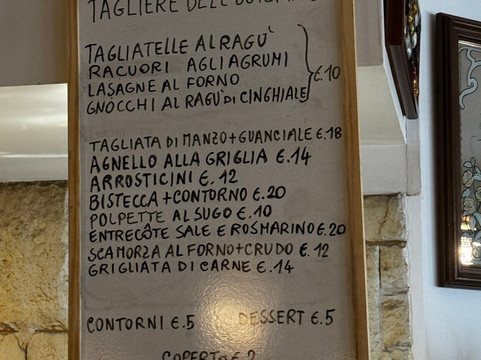 TAGLIERE DELL'
TAGLIATELLE AL RAGU'
RACUORI AGLI AGRUMI
LASAGNE AL FORNO
€.10
GNOCCHI AL RAGÙ DI CINGHIALE
TAGLIATA DI MANZO+GUANCIALE €.18
AGNELLO ALLA GRIGLIA €.14
ARROSTICINI €.12
BISTECCA+CONTORNO €.20
POLPETTE AL SUGO €.10
ENTRECÔTE SALE E ROSMARINO €.20
SCAMORZA AL FORNO+CRUDO €.12
GRIGLIATA DI CARNE €.14
CONTORNI €.5 DESSERT €.5
COPERTO €.2